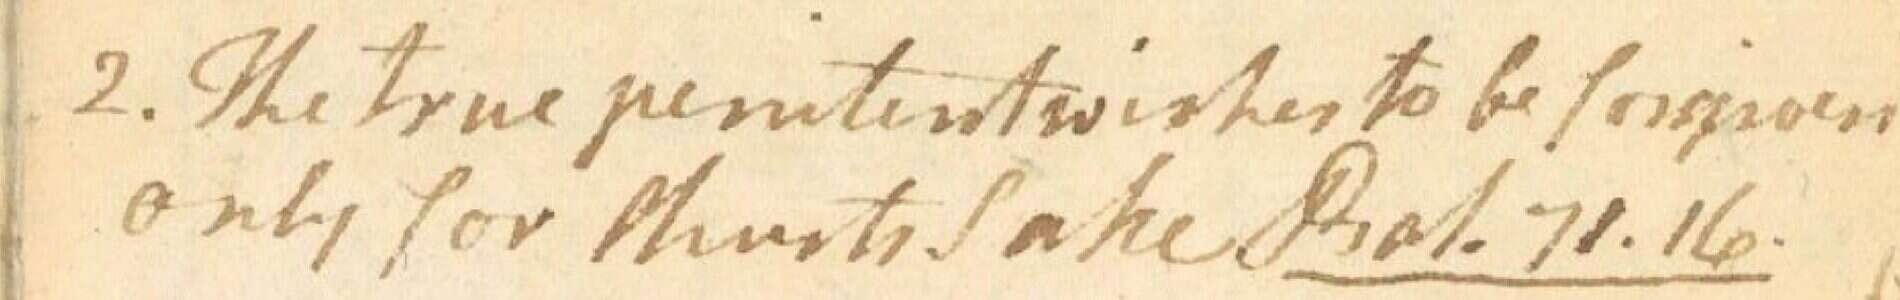 2. The true penitent wishes to be forgiven
only for Christs Sake Psal. 71. 16.